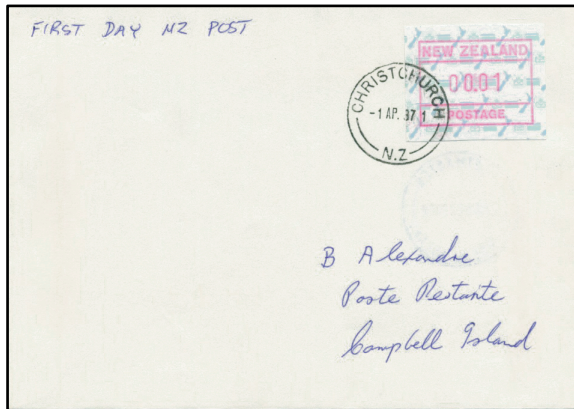 FIRST DAY NZ POST
NEW ZEALAND
00.01
POSTAGE
CHRISTCHURCH
-1 AP. 87 1
N.Z
B Alexandre
Poste Restante
Campbell Island